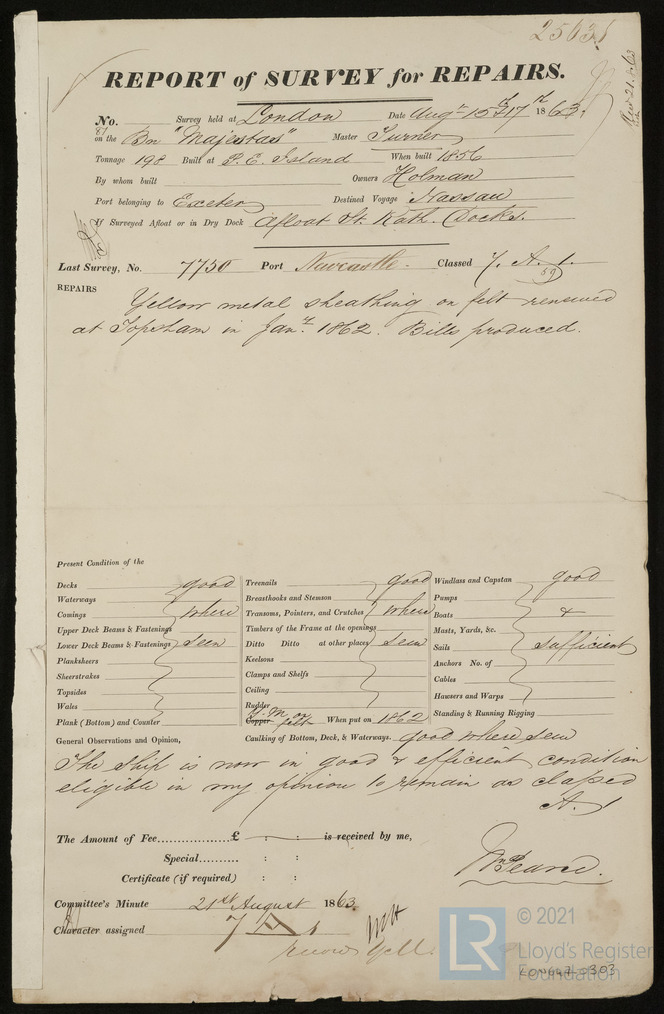 25631
REPORT of SURVEY for REPAIRS.
No. Survey held at London Date Augt 15th & 17th 1863.
on the Bn "Majestas" Master Turner
Tonnage 198 Built at P. E. Island When built 1856
By whom built Owners Holman
Port belonging to Exeter Destined Voyage Nassau
If Surveyed Afloat or in Dry Dock Afloat St. Kath. Docks.
Last Survey, No. 7750 Port Newcastle Classed 7. A. 1
59
REPAIRS
Yellow metal sheathing on felt renewed
at Topsham in Jany. 1862. Bills produced.
Present Condition of the
Decks good
Waterways
Comings where
Upper Deck Beams & Fastenings
Lower Deck Beams & Fastenings seen
Planksheers
Sheerstrakes
Topsides
Wales
Plank (Bottom) and Counter
Treenails good
Breasthooks and Stemson
Transoms, Pointers, and Crutches where
Timbers of the Frame at the openings
Ditto Ditto at other places seen
Keelsons
Clamps and Shelfs
Ceiling
Rudder
Copper Y. M. on felt When put on 1862
Windlass and Capstan good
Pumps
Boats &
Masts, Yards, &c.
Sails sufficient
Anchors No. of
Cables
Hawsers and Warps
Standing & Running Rigging
Caulking of Bottom, Deck, & Waterways. good where seen
General Observations and Opinion,
The Ship is now in good & efficient condition
eligible in my opinion to remain as classed
A. 1
The Amount of Fee................£ : : is received by me,
Special.......... : :
Certificate (if required) : :
Wm Pearce.
Committee's Minute 21st August 1863.
Character assigned 7 A 1
© 2021
LR
Lloyd's Register
Foundation
LON667-0303